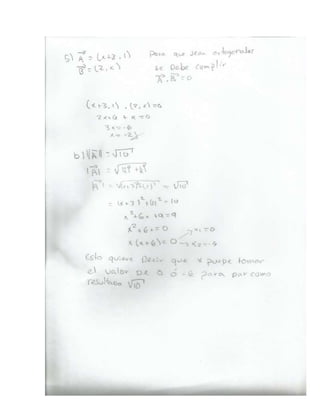 5) A⃗ = (x+3, 1) Para que sean ortogonales
B⃗ = (2, x) se Debe cumplir
A⃗ . B⃗ = 0
(x+3, 1) . (2, x) = 0
2x+6 + x = 0
3x = -6
x = -2
b) ||A⃗|| = √10
|A⃗| = √a² + b²
A⃗ = √(x+3)²+(1)² = √10
= (x+3)² + (1)² = 10
x² + 6x + 9 = 9
x² + 6x = 0
x (x+6) = 0 → x₁ = 0
→ x₂ = -6
Esto quiere Decir que x puede tomar
el valor de 0 ó -6 para dar como
resultado √10